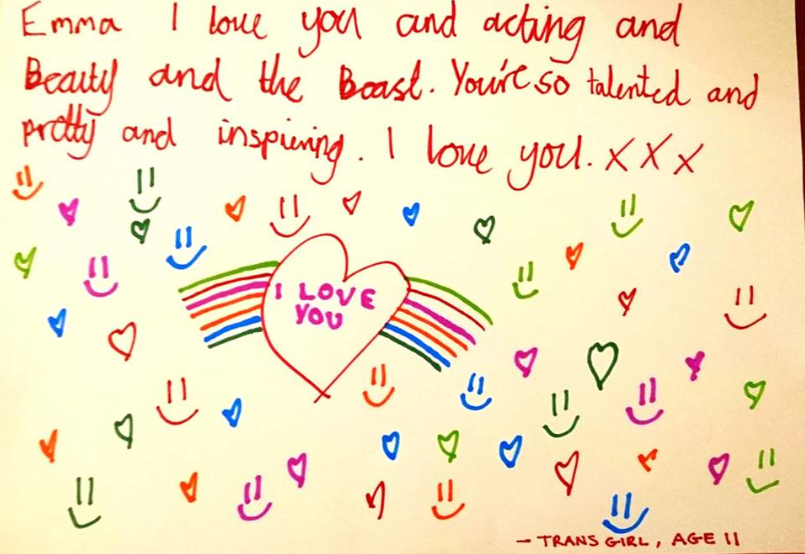 Emma I love you and acting and
Beauty and the Beast. You're so talented and
pretty and inspiring. I love you. x x x
I LOVE
YOU
- TRANS GIRL, AGE 11